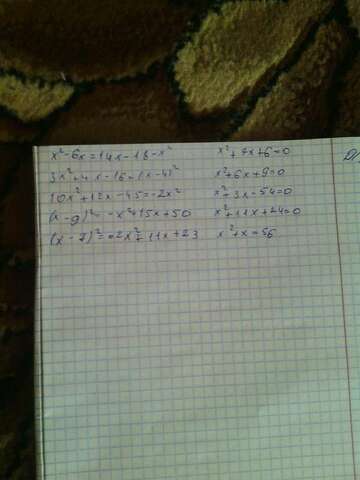 x²-6x=14x-18-x²
3x²+4x-16=(x-4)²
10x²+12x-45=-2x²
(x-9)²=-x²+15x+50
(x-7)²=-2x²+11x+23
x²+7x+6=0
x²+6x+9=0
x²+3x-54=0
x²+11x+24=0
x²+x=56